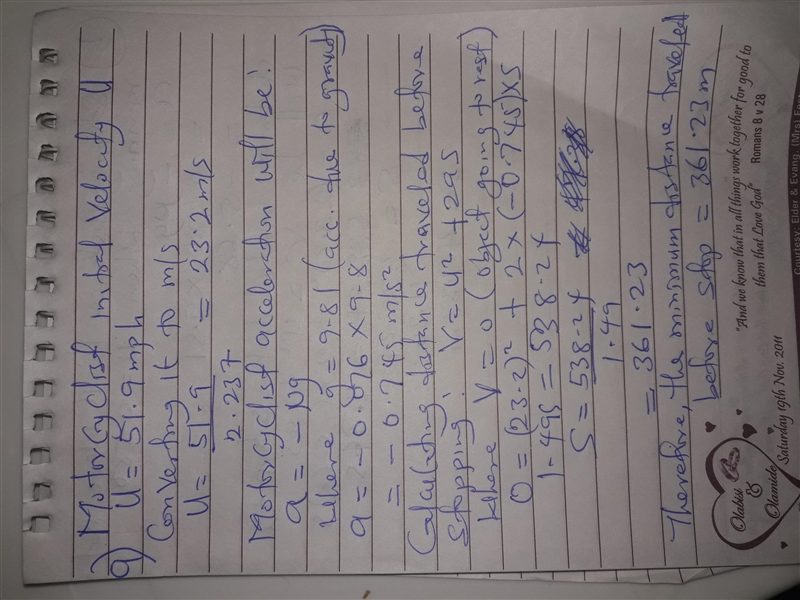 9) Motorcyclist initial velocity u
u = 51.9 mph
Converting it to m/s
u = 51.9 = 23.2 m/s
2.237
Motorcyclist acceleration will be:
a = -μg
Where g = 9.81 (acc. due to gravity)
a = -0.076 × 9.8
= -0.745 m/s²
Calculating distance traveled before
stopping: V = u² + 2as
Where V = 0 (object going to rest)
0 = (23.2)² + 2 × (-0.745) × S
1.49S = 538.24
S = 538.24
1.49
= 361.23
Therefore, the minimum distance traveled
before stop = 361.23m
Olabisi
&
Olamide
Saturday 19th Nov. 2011
"And we know that in all things work together for good to
them that Love God"
Romans 8 v 28
Courtesy: Elder & Evang. (Mrs)